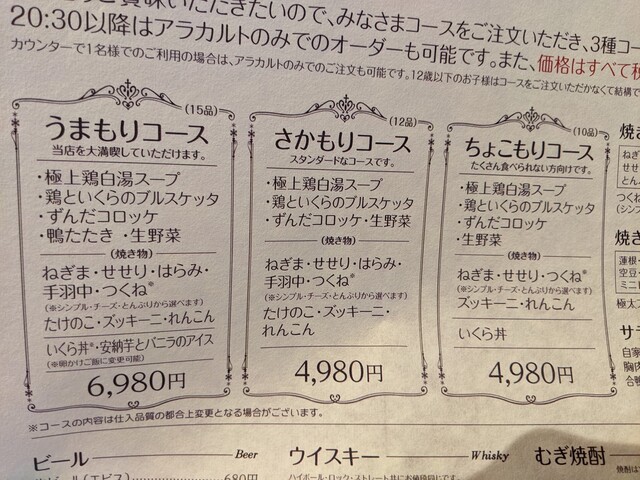 いただきたいので、みなさまコースをご注文いただき、3種コー
20:30以降はアラカルトのみでのオーダーも可能です。また、価格はすべて税
カウンターで1名様でのご利用の場合は、アラカルトのみでのご注文も可能です。12歳以下のお子様はコースをご注文いただかなくて結構で
(15品)
うまもりコース
当店を大満喫していただけます。
・極上鶏白湯スープ
・鶏といくらのブルスケッタ
・ずんだコロッケ
・鴨たたき ・生野菜
(焼き物)
ねぎま・せせり・はらみ・
手羽中・つくね※
(※シンプル・チーズ・とんぶりから選べます)
たけのこ・ズッキーニ・れんこん
いくら丼※・安納芋とバニラのアイス
(※卵かけご飯に変更可能)
6,980円
(12品)
さかもりコース
スタンダードなコースです。
・極上鶏白湯スープ
・鶏といくらのブルスケッタ
・ずんだコロッケ・生野菜
(焼き物)
ねぎま・せせり・はらみ・
手羽中・つくね※
(※シンプル・チーズ・とんぶりから選べます)
たけのこ・ズッキーニ・
れんこん
4,980円
(10品)
ちょこもりコース
たくさん食べられない方向けです。
・極上鶏白湯スープ
・鶏といくらのブルスケッタ
・ずんだコロッケ
・生野菜
(焼き物)
ねぎま・せせり・つくね※
(※シンプル・チーズ・とんぶりから選べます)
ズッキーニ・れんこん
いくら丼
4,980円
焼き
ねぎ
せせ
とん
つくね
(シン
焼き
蓮根・
空豆・
ミニト
極太ア
サ
自家
胸肉
合鴨
※コースの内容は仕入品質の都合上変更となる場合がございます。
ビール Beer
生ビール(エビス) 680円
ウイスキー Whisky
ハイボール・ロック・ストレート共にお値段同じです。
むぎ焼酎
焼酎は